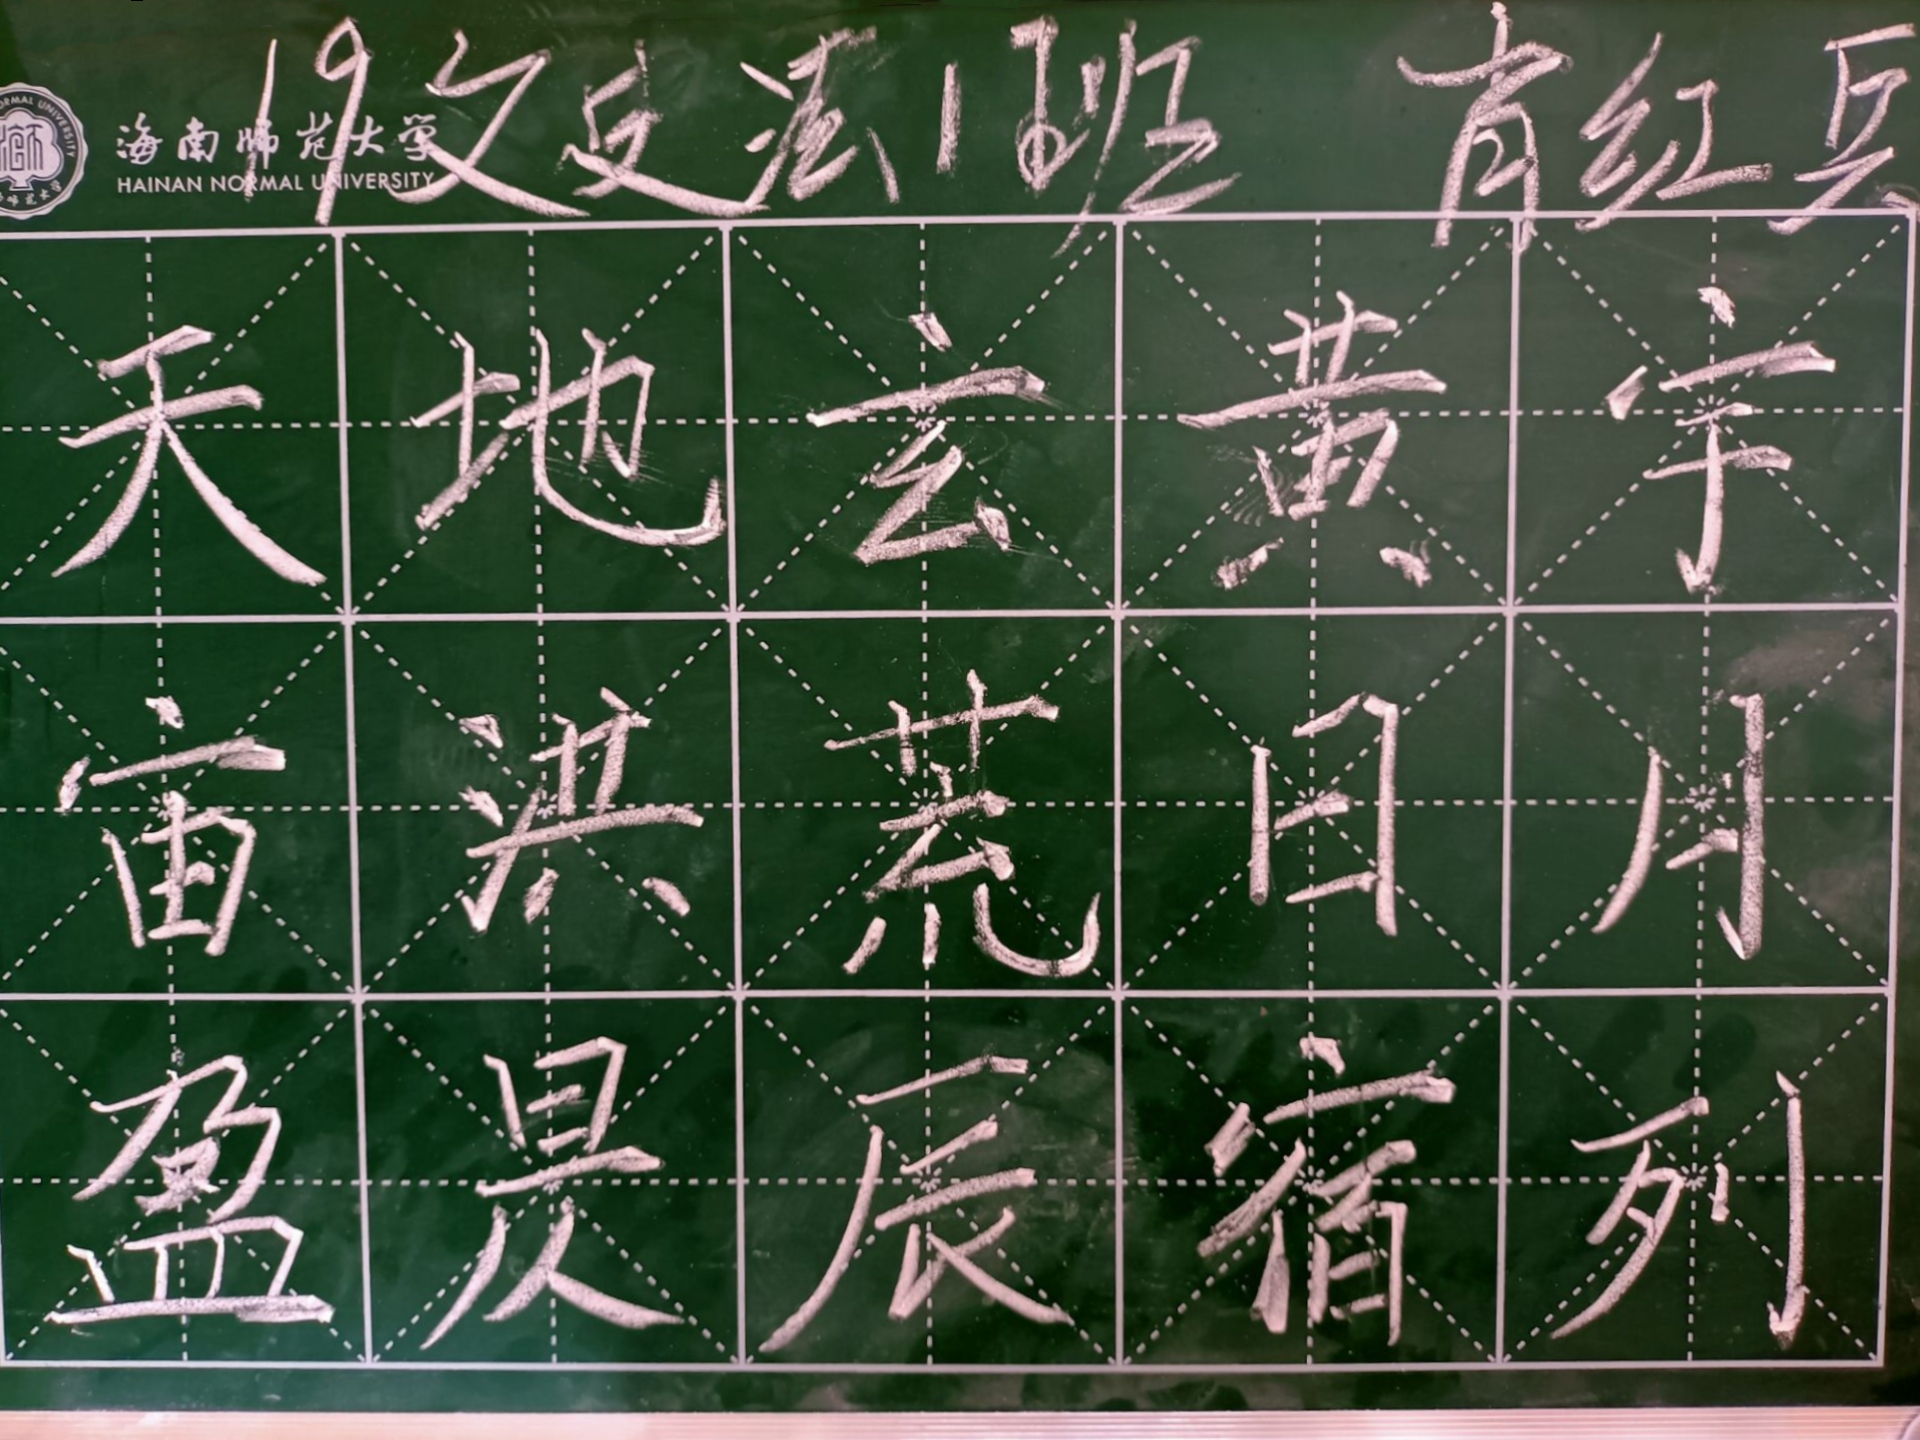 19文史法1班 肖红兵
海南师范大学
HAINAN NORMAL UNIVERSITY
天地玄黄宇
宙洪荒日月
盈昃辰宿列